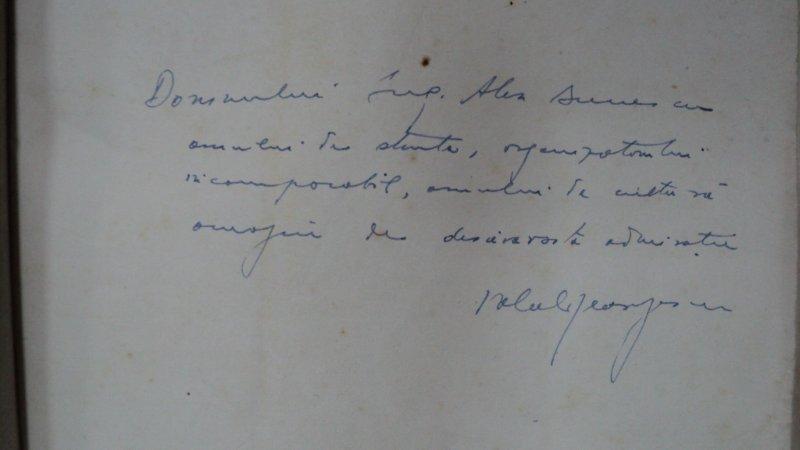 Domnului Ing. Alex
omului de stiinta, organizatorului
incomparabil, omului de cultură
omagiu de desăvarsită admirație